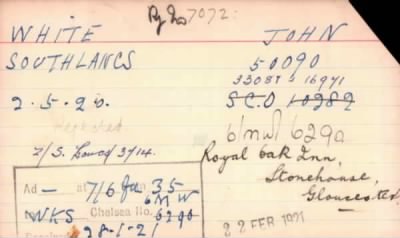 7072:
WHITE JOHN
SOUTH LANCS 50090
33087 - 16971
2.5.20. S.C.O 10282
Rejected 6/MW/6290
2/S. 3/14. Royal Oak Inn,
Stonehouse,
Gloucester
Ad — at 7/6 35
6MW
NKS Chelsea No. 6290
28-1-21
22 FEB 1921